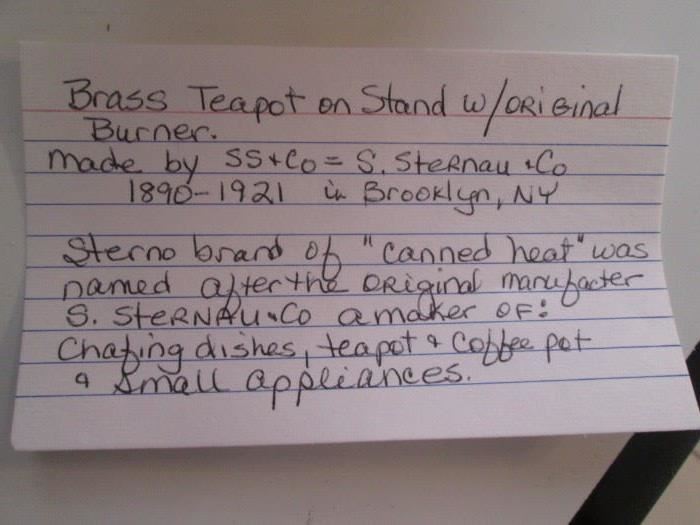 Brass Teapot on Stand w/ORiGinal
Burner.
made by SS+Co = S. SteRnau + Co
1890-1921 in Brooklyn, NY
Sterno brand of "canned heat" was
named after the ORiginal manufacter
S. SteRNAU + Co a maker OF:
Chafing dishes, teapot + Coffee pot
+ Small appliances.